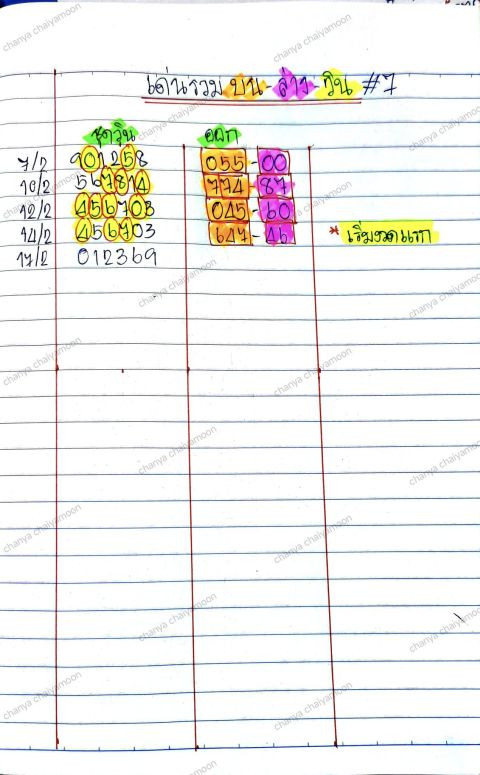 เด่นรวม บน - ล่าง - วิน #7
ชุดวิน ออก
7/2 901258 055 - 00
10/2 567814 774 - 87
12/2 456703 045 - 60
14/2 456703 647 - 46 * เริ่มงวดแรก
17/2 012369
chanya chaiyamoon